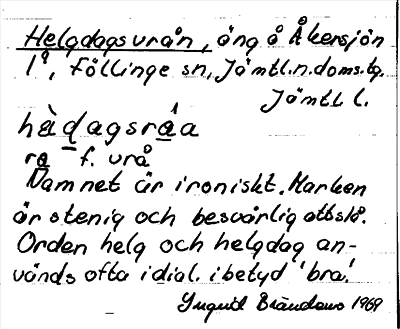 Helgdagsvrån, äng å Åkersjön
1⁸, Föllinge sn, Jämtl.n.doms.tg.
Jämtl l.
hὰdagsrá̱a
ra̱ f. vrå
Namnet är ironiskt. Marken
är stenig och besvärlig att slå.
Orden helg och helgdag an-
vänds ofta i dial. i betyd 'bra'.
Yngvil Brändaus 1969